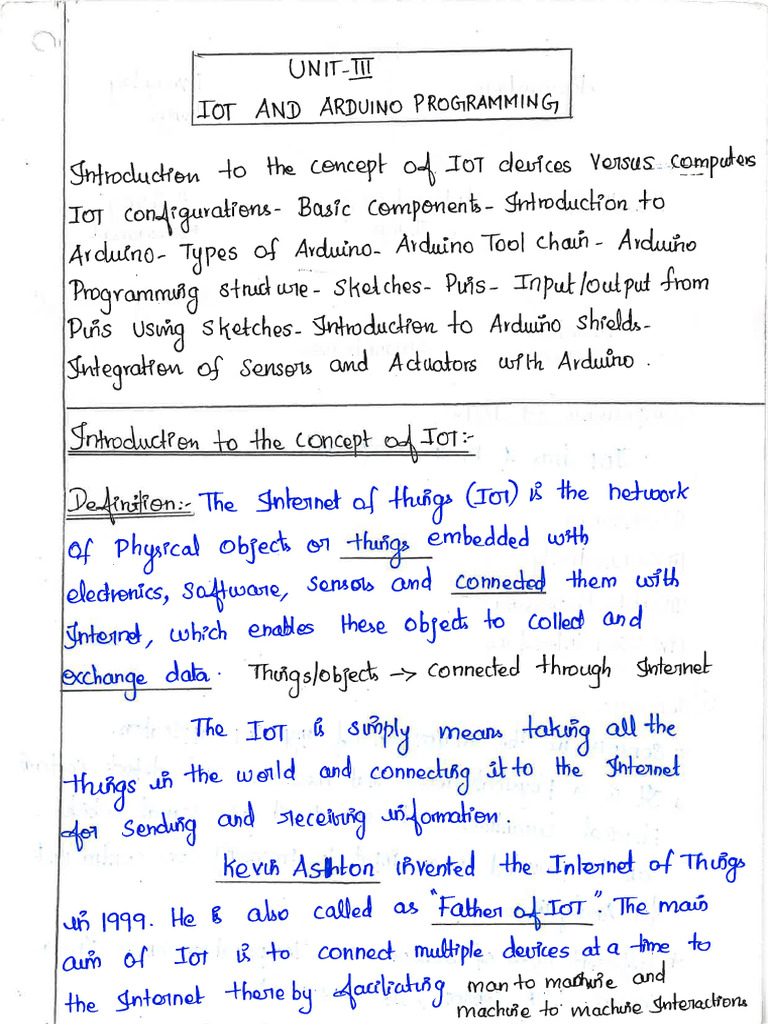 UNIT-III
IOT AND ARDUINO PROGRAMMING
Introduction to the concept of IOT devices Versus computers
IOT configurations- Basic components- Introduction to
Arduino- Types of Arduino- Arduino Tool chain- Arduino
Programming structure- Sketches- Pins- Input/output from
Pins Using Sketches- Introduction to Arduino shields-
Integration of Sensors and Actuators with Arduino.
Introduction to the concept of IOT:-
Definition:- The Internet of things (IOT) is the network
of Physical Objects or things embedded with
electronics, software, sensors and connected them with
Internet, which enables these objects to collect and
exchange data. Things/objects → connected through Internet
The IOT is simply means taking all the
things in the world and connecting it to the Internet
for sending and receiving information.
Kevin Ashton invented the Internet of Things
in 1999. He is also called as "Father of IOT". The main
aim of IOT is to connect multiple devices at a time to
the Internet thereby faciliating man to machine and
machine to machine Interactions